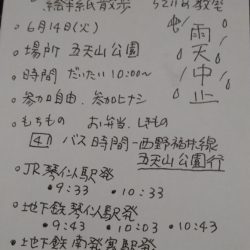 絵手紙散歩
教室
雨天中止
○6月14日(火)
○場所 五天山公園
○時間 だいたい10:00〜
○参加自由、参加ヒナシ
○もちもの お弁当、しきもの
41 バス時間-西野福井線
五天山公園行
○JR琴似駅発
・9:33 ・10:33
○地下鉄琴似駅発
・9:43 ・10:03 ・10:43
○地下鉄 発寒南駅発